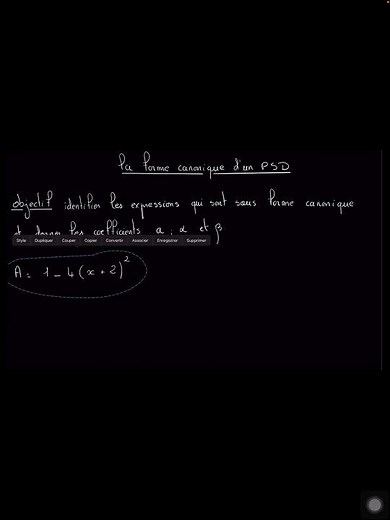 la forme canonique d'un PSD
objectif identifier les expressions qui sont sous forme canonique
et donner les coefficients a, α et β
Style Dupliquer Couper Copier Convertir Associer Enregistrer Supprimer
A = 1 - 4(x + 2)²